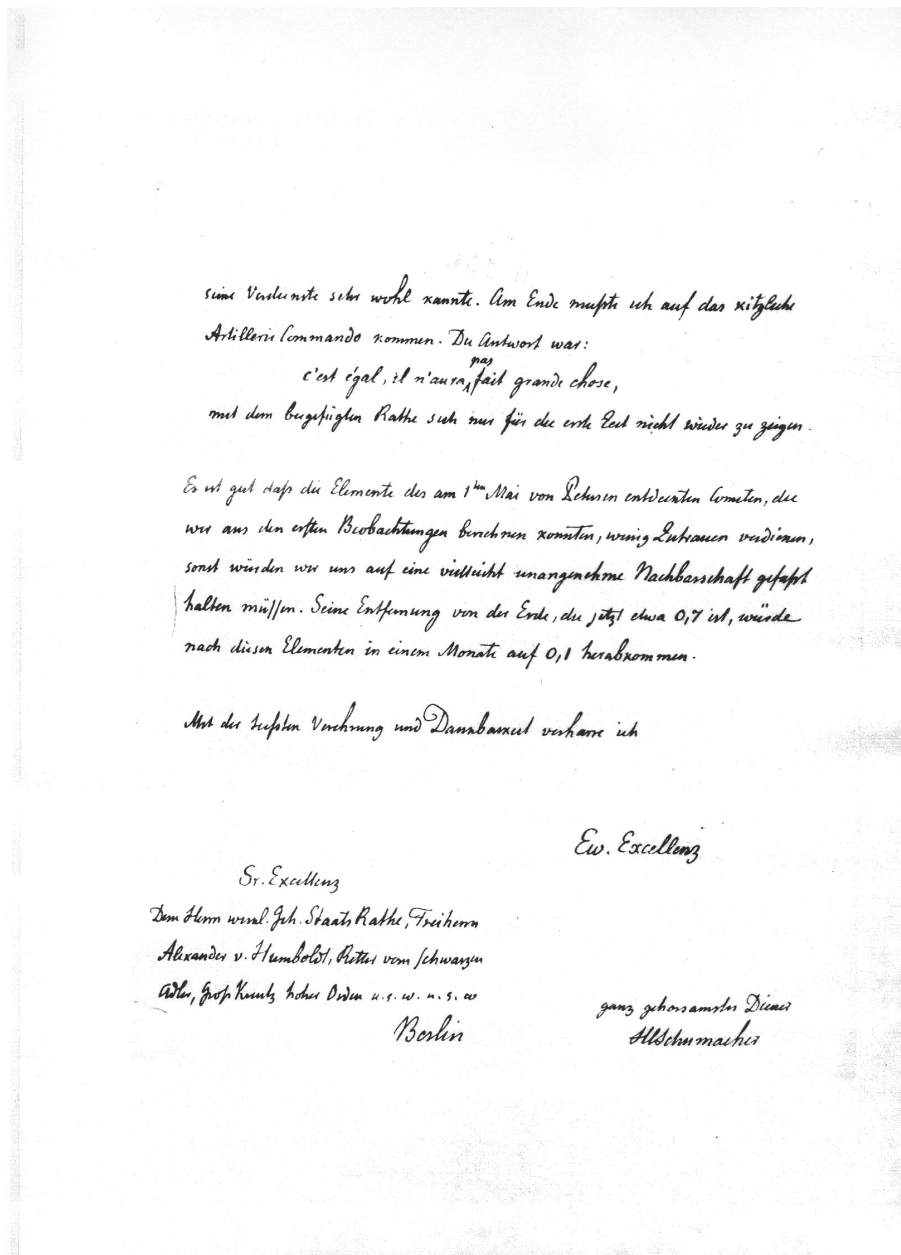 seine Verdienste sehr wohl kannte. Am Ende mußte ich auf das kitzliche
Artillerie Commando kommen. Die Antwort war:
pas
c'est égal, il n'aura fait grande chose,
mit dem beygefügten Rathe sich nur für die erste Zeit nicht wieder zu zeigen.
Es ist gut daß die Elemente des am 1sten Mai von Petersen entdeckten Cometen, die
wir aus den ersten Beobachtungen berechnen konnten, wenig Zutrauen verdienen,
sonst würden wir uns auf eine vielleicht unangenehme Nachbarschaft gefaßt
halten müssen. Seine Entfernung von der Erde, die jetzt etwa 0,7 ist, würde
nach diesen Elementen in einem Monate auf 0,1 herabkommen.
Mit der tiefsten Verehrung und Dankbarkeit verharre ich
Ew. Excellenz
Sr. Excellenz
Dem Herrn wirkl. Geh. Staats Rathe, Freiherrn
Alexander v. Humboldt, Ritter vom schwarzen
Adler, Groß Kreutz hoher Orden u. s. w. u. s. w
Berlin
ganz gehorsamster Diener
HCSchumacher